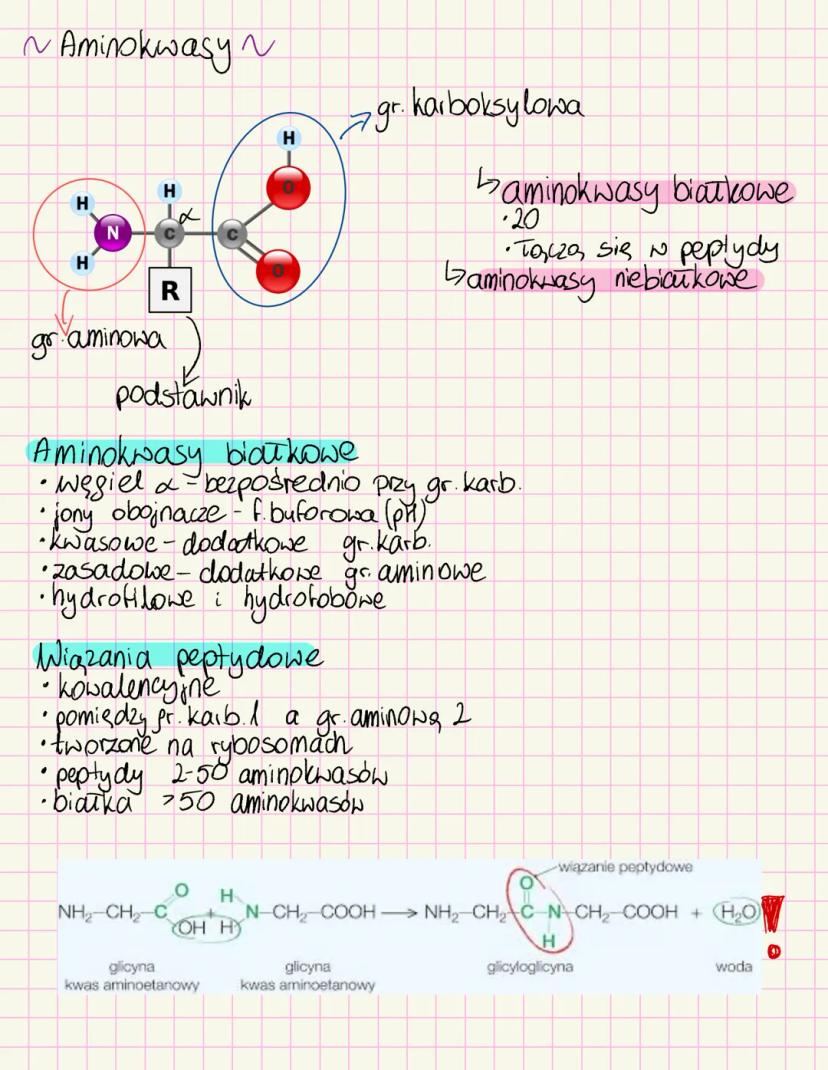 ~ Aminokwasy ~
gr. karboksylowa
H
O
H H
N C α C
H R O
gr. aminowa
podstawnik
↳ aminokwasy białkowe
• 20
• łączą się w peptydy
↳ aminokwasy niebiałkowe
Aminokwasy białkowe
• węgiel α - bezpośrednio przy gr. karb.
• jony obojnacze - f. buforowa (pH)
• kwasowe - dodatkowe gr. karb.
• zasadowe - dodatkowe gr. aminowe
• hydrofilowe i hydrofobowe
Wiązania peptydowe
• kowalencyjne
• pomiędzy gr. karb. 1 a gr. aminową 2
• tworzone na rybosomach
• peptydy 2-50 aminokwasów
• białka >50 aminokwasów
wiązanie peptydowe
O H O
NH₂–CH₂–C + N–CH₂–COOH → NH₂–CH₂–C–N–CH₂–COOH + H₂O !
OH H H
glicyna glicyna glicyloglicyna woda
kwas aminoetanowy kwas aminoetanowy